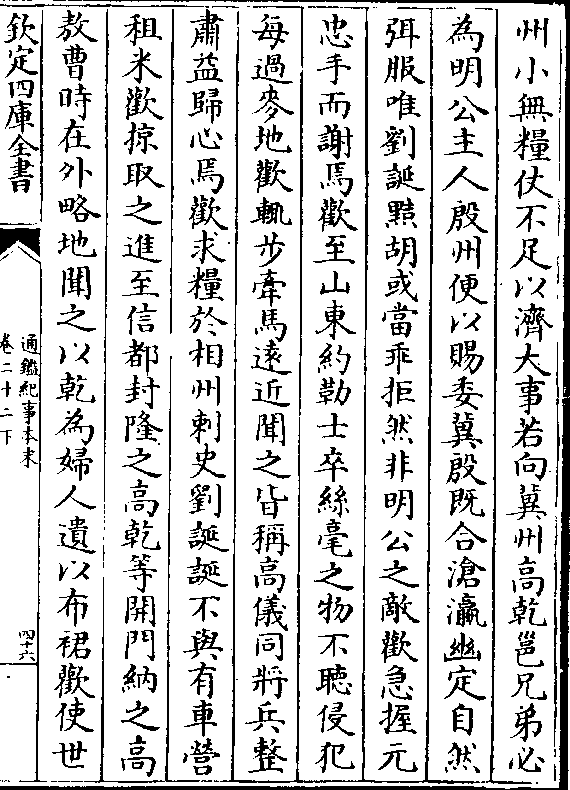 州小無糧仗不足以濟大事若向冀州高乾邕兄弟必
為明公主人殷州便以賜委冀殷既合滄瀛幽定自然
弭服唯劉誕黠胡或當乖拒然非明公之敵歡急握元
忠手而謝焉歡至山東約勒士卒絲毫之物不聽侵犯
每過麥地歡輒步牽馬逺近聞之皆稱高儀同將兵整
肅益歸心焉歡求糧於相州刺史劉誕誕不與有車營
租米歡掠取之進至信都封隆之高乾等開門納之高
敖曹時在外略地聞之以乾為婦人遺以布裙歡使世
欽定四庫全書
通鑑紀事本末
卷二十二下
四十六